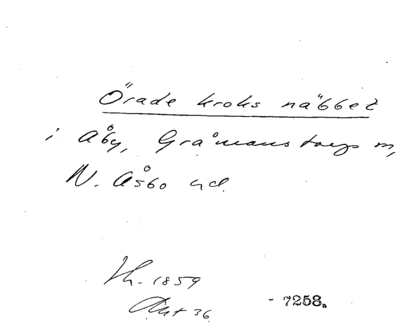 Örade kroks näbbet
i Åby, Gråmanstorps m,
N. Åsbo hd.
Lh. 1859
Akt 36
- 7258.